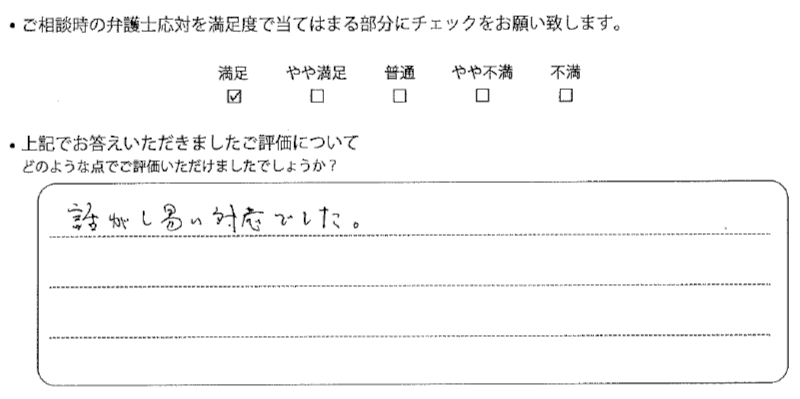 ・ご相談時の弁護士応対を満足度で当てはまる部分にチェックをお願い致します。
満足 やや満足 普通 やや不満 不満
☑ ☐ ☐ ☐ ☐
・上記でお答えいただきましたご評価について
どのような点でご評価いただけましたでしょうか？
話がし易い対応でした。